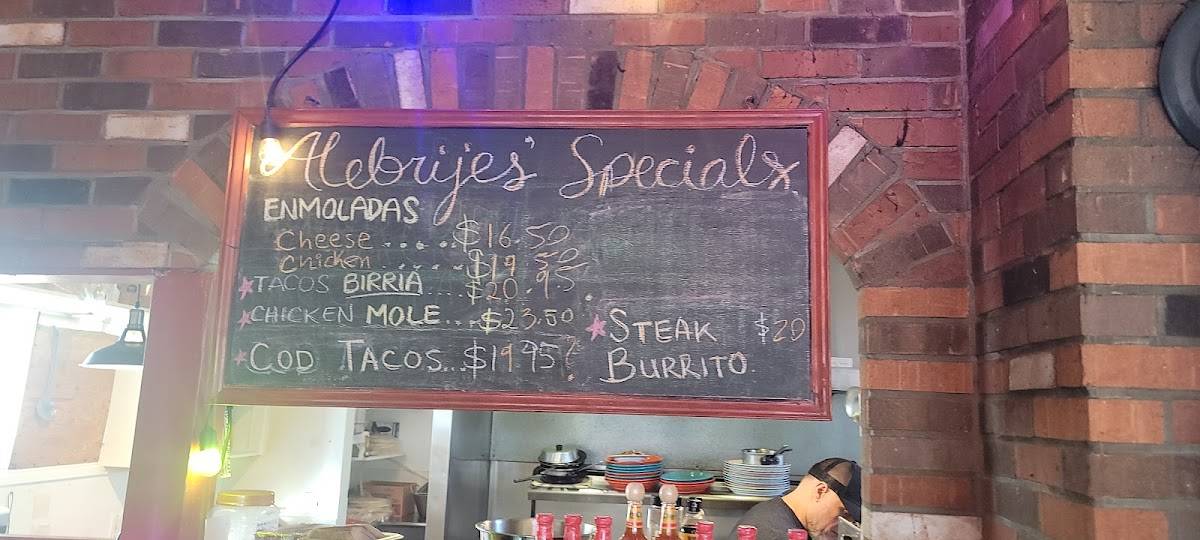 Alebrijes' Specials
ENMOLADAS
Cheese .....$16.50
Chicken ....$19.50
TACOS BIRRIA ...$20.95
CHICKEN MOLE...$23.50
COD TACOS...$19.95
STEAK $20
BURRITO.